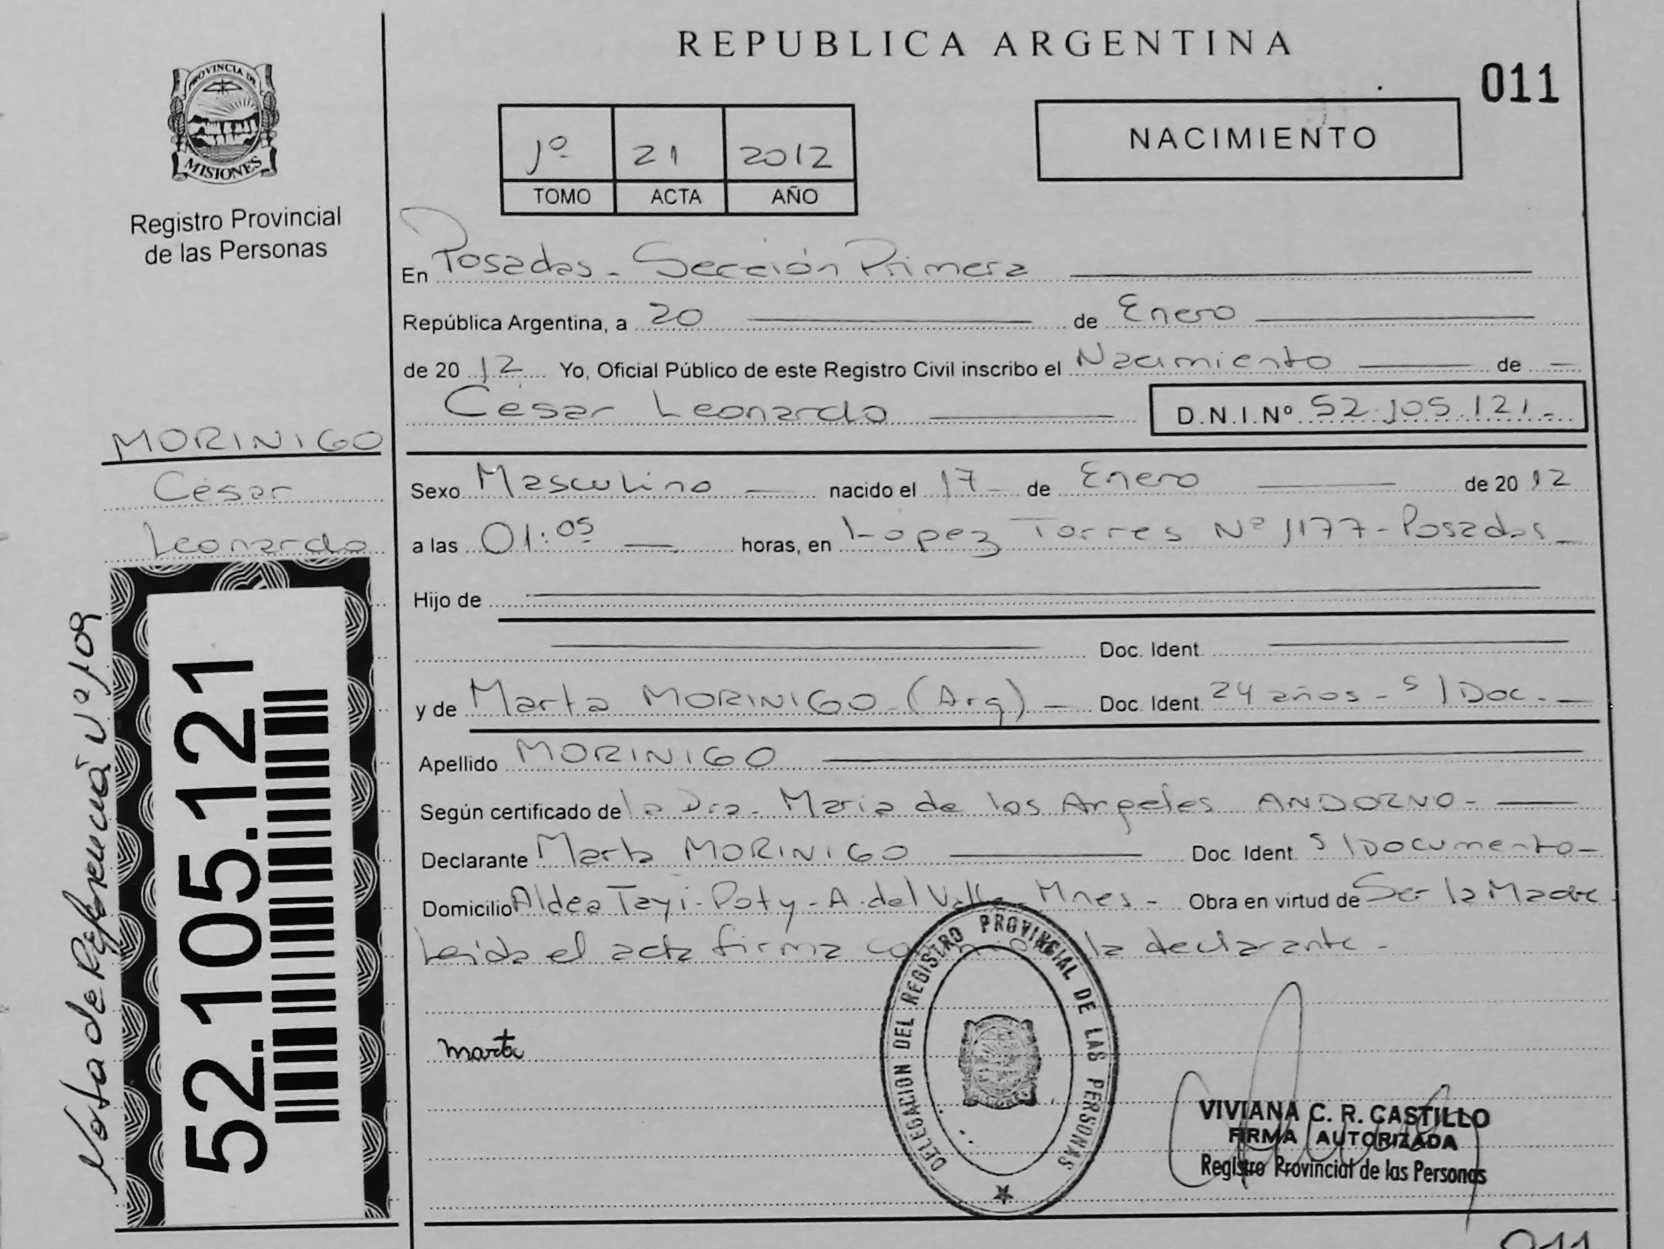 REPUBLICA ARGENTINA
011
PROVINCIA DE
MISIONES
Registro Provincial
de las Personas
1º 21 2012
TOMO ACTA AÑO
NACIMIENTO
En Posadas - Sección Primera
República Argentina, a 20 de Enero
de 2012 Yo, Oficial Público de este Registro Civil inscribo el Nacimiento de
César Leonardo D.N.I.Nº 52.105.121.-
MORINIGO
César
Leonardo
Sexo Masculino nacido el 17 de Enero de 2012
a las 01:05 horas, en Lopez Torres Nº 1177-Posadas-
Hijo de
Doc. Ident.
y de Marta MORINIGO (Arg) - Doc. Ident. 24 años - s/Doc.-
Apellido MORINIGO
Según certificado de la Dra. Maria de los Angeles ANDORNO-
Declarante Marta MORINIGO Doc. Ident. s/Documento-
Domicilio Aldea Tayi-Poty-A.del Valle-Mnes- Obra en virtud de Ser la Madre
Leida el acta firma la declarante-
marta
DELEGACION DEL REGISTRO PROVINCIAL DE LAS PERSONAS
VIVIANA C. R. CASTILLO
FIRMA AUTORIZADA
Registro Provincial de las Personas
Nota de Referencia Nº 109
52.105.121
011